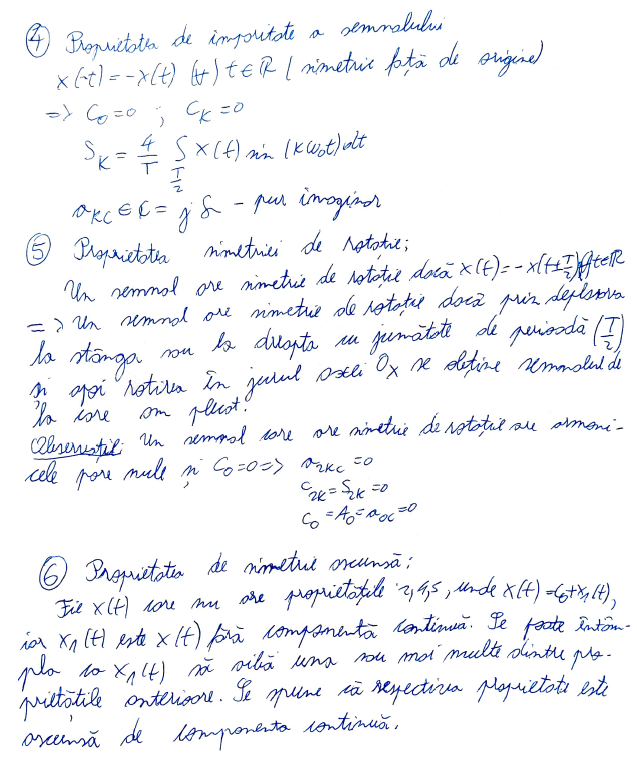 ④ Proprietatea de imparitate a semnalului
x(-t) = -x(t) (∀) t ∈ ℝ ( simetrie față de origine)
=> C₀=0 ; C_K=0
S_K = 4/T ∫_{T/2} x(t) sin (kω₀t) dt
a_{KC} ∈ ℂ = j - pur imaginar
⑤ Proprietatea simetriei de rotație;
Un semnal are simetrie de rotație dacă x(t) = -x(t±T/2) (∀) t∈ℝ
=> Un semnal are simetrie de rotație dacă prin deplasarea
la stânga sau la dreapta cu jumătate de perioadă (T/2)
și apoi rotirea în jurul axei Ox se obține semnalul de
la care am plecat.
Observație: Un semnal care are simetrie de rotație are armoni-
cele pare nule și C₀=0 => a_{2KC} = 0
C_{2K} = S_{2K} = 0
C₀ = A₀ = a_{0C} = 0
⑥ Proprietatea de simetrie ascunsă:
Fie x(t) care nu are proprietățile 2,4,5, unde x(t) = C₀+x₁(t),
iar x₁(t) este x(t) fără componentă continuă. Se poate întâm-
pla ca x₁(t) să aibă una sau mai multe dintre pro-
prietățile anterioare. Se spune că respectiva proprietate este
ascunsă de componenta continuă.